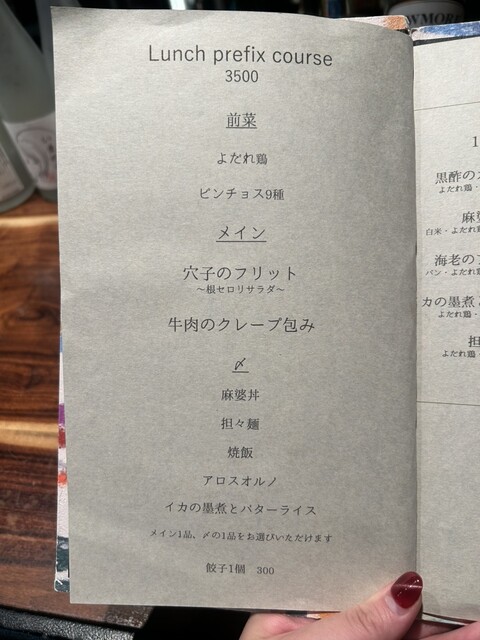 Lunch prefix course
3500
前菜
よだれ鶏
ピンチョス9種
メイン
穴子のフリット
〜根セロリサラダ〜
牛肉のクレープ包み
〆
麻婆丼
担々麺
焼飯
アロスオルノ
イカの墨煮とバターライス
メイン1品、〆の1品をお選びいただけます
餃子1個 300
WMORE
1
黒酢の
よだれ鶏・
麻婆
白米・よだれ鶏
海老の
パン・よだれ鶏
カの墨煮
よだれ鶏・
担
よだれ鶏・